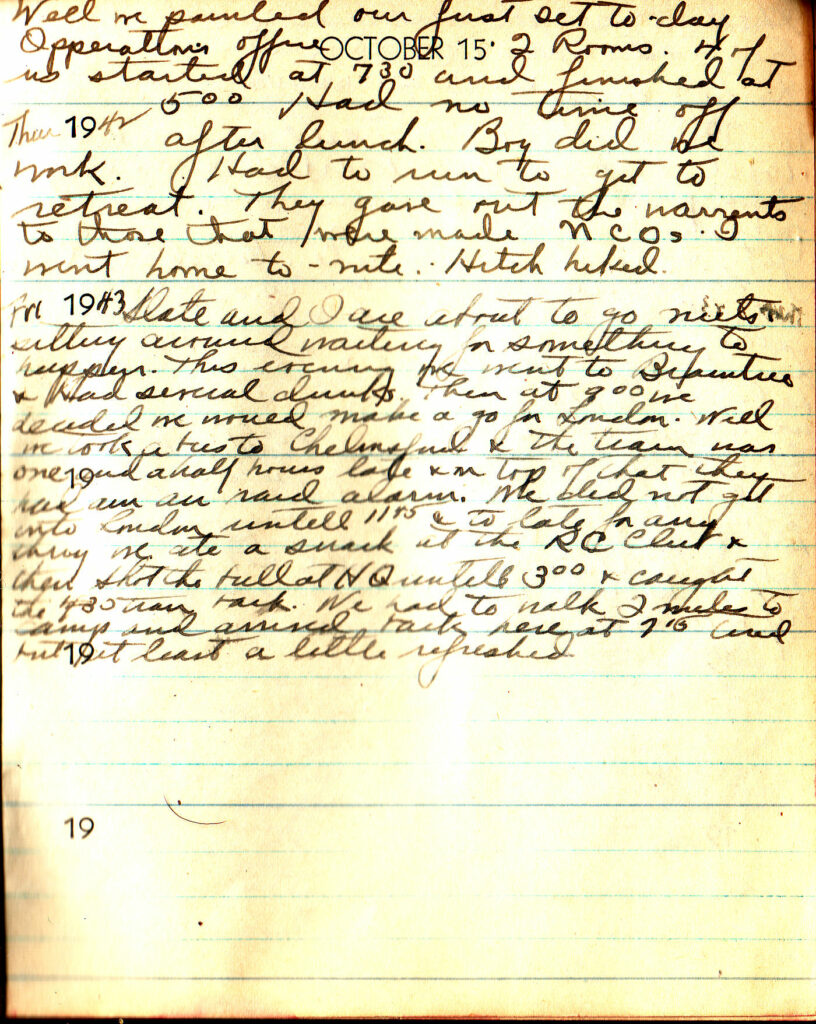 Well we painted our first set to-day
Opperations office OCTOBER 15. 2 Rooms. 4 of
us started at 730 and finished at
500 Had no time off
Thur 1942 after lunch. Boy did we
work. Had to run to get to
retreat. They gave out the warrents
to those that were made NCOs. I
went home to-nite. Hitch hiked.
Fri 1943 Slate and I are about to go nuts
sitting around waiting for something to
happen. This evening we went to Braintree
& Had several drinks. Then at 900 we
decided we would make a go for London. Well
we took a bus to Chelmsford & the train was
one and a half hours late & on top of that they
19
had an air raid alarm. We did not get
into London untill 1145 & to late for any
thing we ate a snack at the RC Club &
then shot the bull at HQ untill 300 & caught
the 435 train back. We had to walk 2 miles to
camp and arrived back here at 715 tired
but at least a little refreshed
19
19